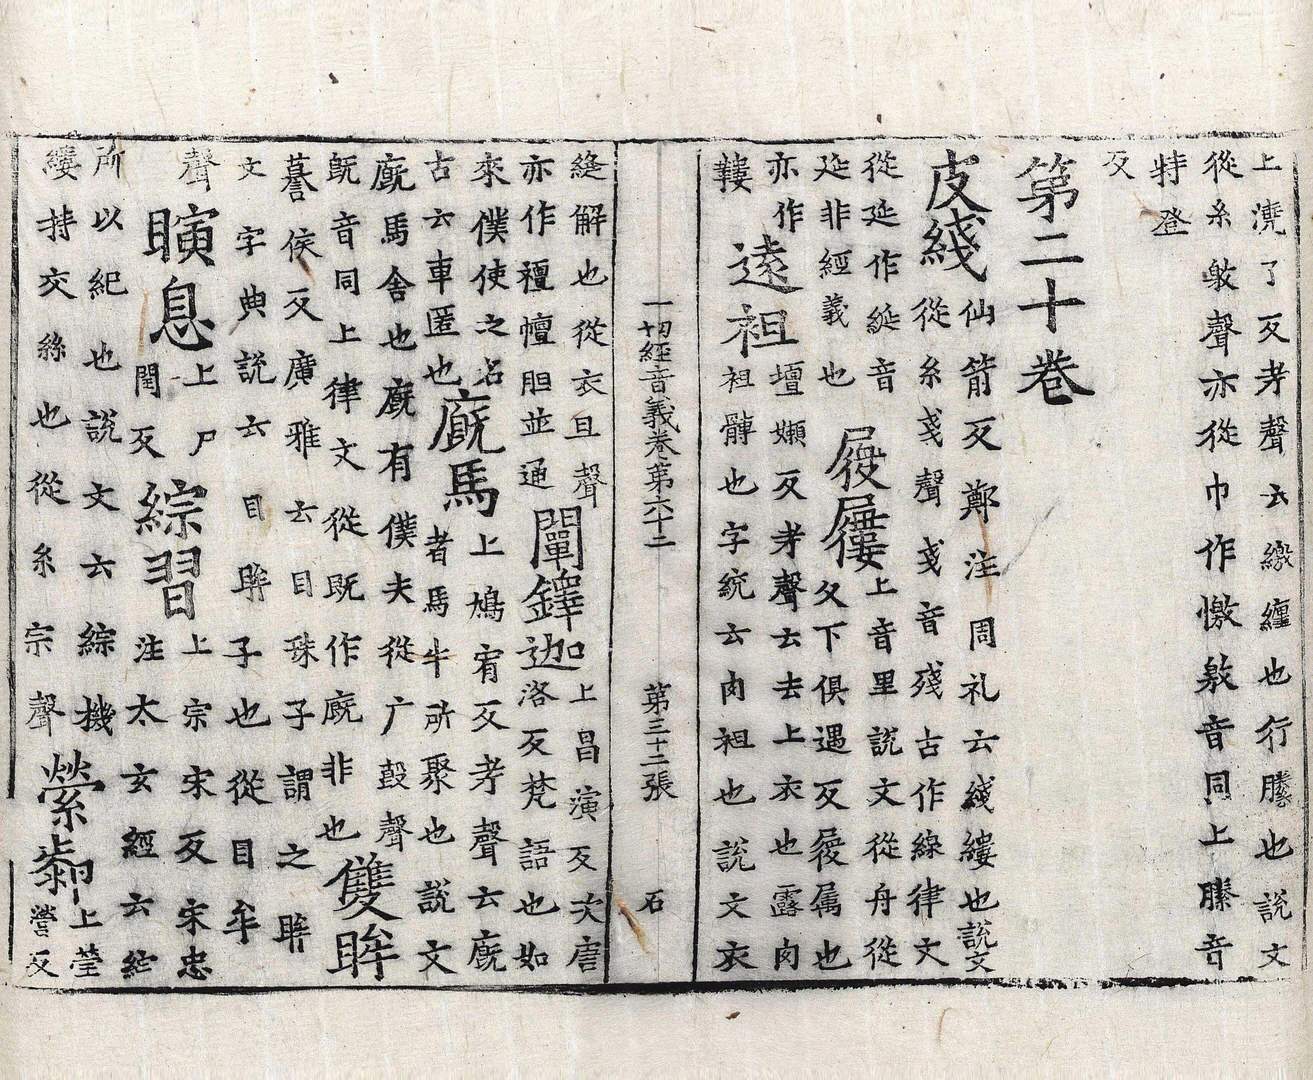 上澆了反考聲云繳纏也行縢也說文
從糸敫聲亦從巾作憿敫音同上縢音
特登
反
第二十卷
皮綫
仙箭反鄭注周礼云綫縷也說文
從糸戔聲戔音殘古作線律文
從延作綖音
延非經義也
屐屨
上音里說文從舟從
夂下俱遇反屐属也
亦作
鞻
遠袒
壇嬾反考聲云去上衣也露肉
袒髀也字統云肉袒也說文衣
一切經音義卷第六十二
第三十二張
石
縫解也從衣旦聲
亦作襢幝胆並通
闡鐸迦
上昌演反次唐
洛反梵語也如
來僕使之名
古云車匿也
廐馬
上鳩宥反考聲云廐
者馬牛所聚也說文
廐馬舍也廐有僕夫從广㲃聲
旣音同上律文從既作廐非也
雙眸
暮侯反廣雅云目珠子謂之眸
文字典說云目眸子也從目牟
聲
瞚息
上尸
閏反
綜習
上宗宋反宋忠
注太玄經云綜
所以紀也說文云綜機
縷持交絲也從糸宗聲
縈
上塋
營反